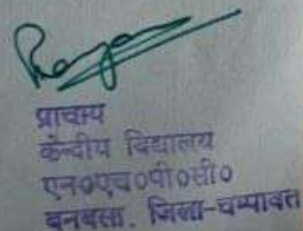 प्राचार्य
केन्द्रीय विद्यालय
एन०एच०पी०सी०
बनबसा. जिला-चम्पावत